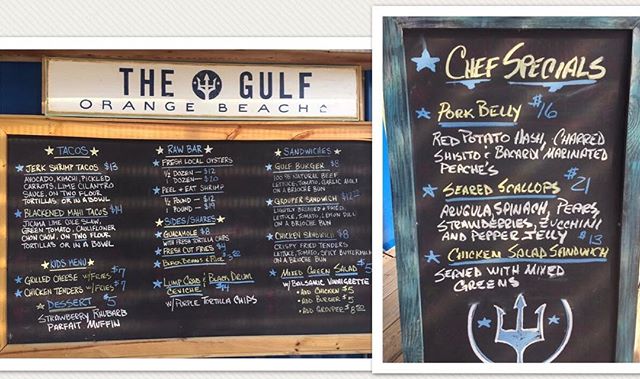 THE GULF
ORANGE BEACH
TACOS
JERK SHRIMP TACOS $13
AVOCADO, KIMCHI, PICKLED
CARROTS, LIME CILANTRO
SAUCE, ON TWO FLOUR
TORTILLAS OR IN A BOWL
BLACKENED MAHI TACOS $14
JICAMA LIME COLE SLAW,
GREEN TOMATO, CAULIFLOWER
CHOW CHOW, ON TWO FLOUR
TORTILLAS OR IN A BOWL
KIDS MENU
GRILLED CHEESE W/FRIES $7
CHICKEN TENDERS W/FRIES $7
DESSERT $5
STRAWBERRY RHUBARB
PARFAIT MUFFIN
RAW BAR
FRESH LOCAL OYSTERS
1/2 DOZEN —
1 DOZEN —
PEEL & EAT SHRIMP
1/2 POUND — $12
1 POUND — $19
SIDES/SHARES
GUACAMOLE $8
WITH FRESH TORTILLA CHIPS
FRESH CUT FRIES $4
BLACK BEANS & RICE
LUMP CRAB & BLACK DRUM
CEVICHE $14
W/PURPLE TORTILLA CHIPS
SANDWICHES
GULF BURGER $8
100% NATURAL BEEF
LETTUCE, TOMATO, GARLIC AIOLI
ON A BRIOCHE BUN
GROUPER SANDWICH
LIGHTLY BREADED & FRIED,
LETTUCE, TOMATO, LEMON DILL
ON A BRIOCHE BUN
CHICKEN SANDWICH $8
CRISPY FRIED TENDERS
LETTUCE, TOMATO, SPICY BUTTERMILK
ON A BRIOCHE BUN
MIXED GREEN SALAD $5
W/BALSAMIC VINAIGRETTE
• ADD CHICKEN $5
• ADD BURGER $5
• ADD GROUPER $8.50
CHEF SPECIALS
PORK BELLY $16
RED POTATO HASH, CHARRED
SHISITO & BACARDI MARINATED
PEACHE'S
SEARED SCALLOPS $21
ARUGULA SPINACH, PEARS,
STRAWBERRIES, ZUCCHINI
AND PEPPER JELLY
CHICKEN SALAD SANDWICH $13
SERVED WITH MIXED
GREENS